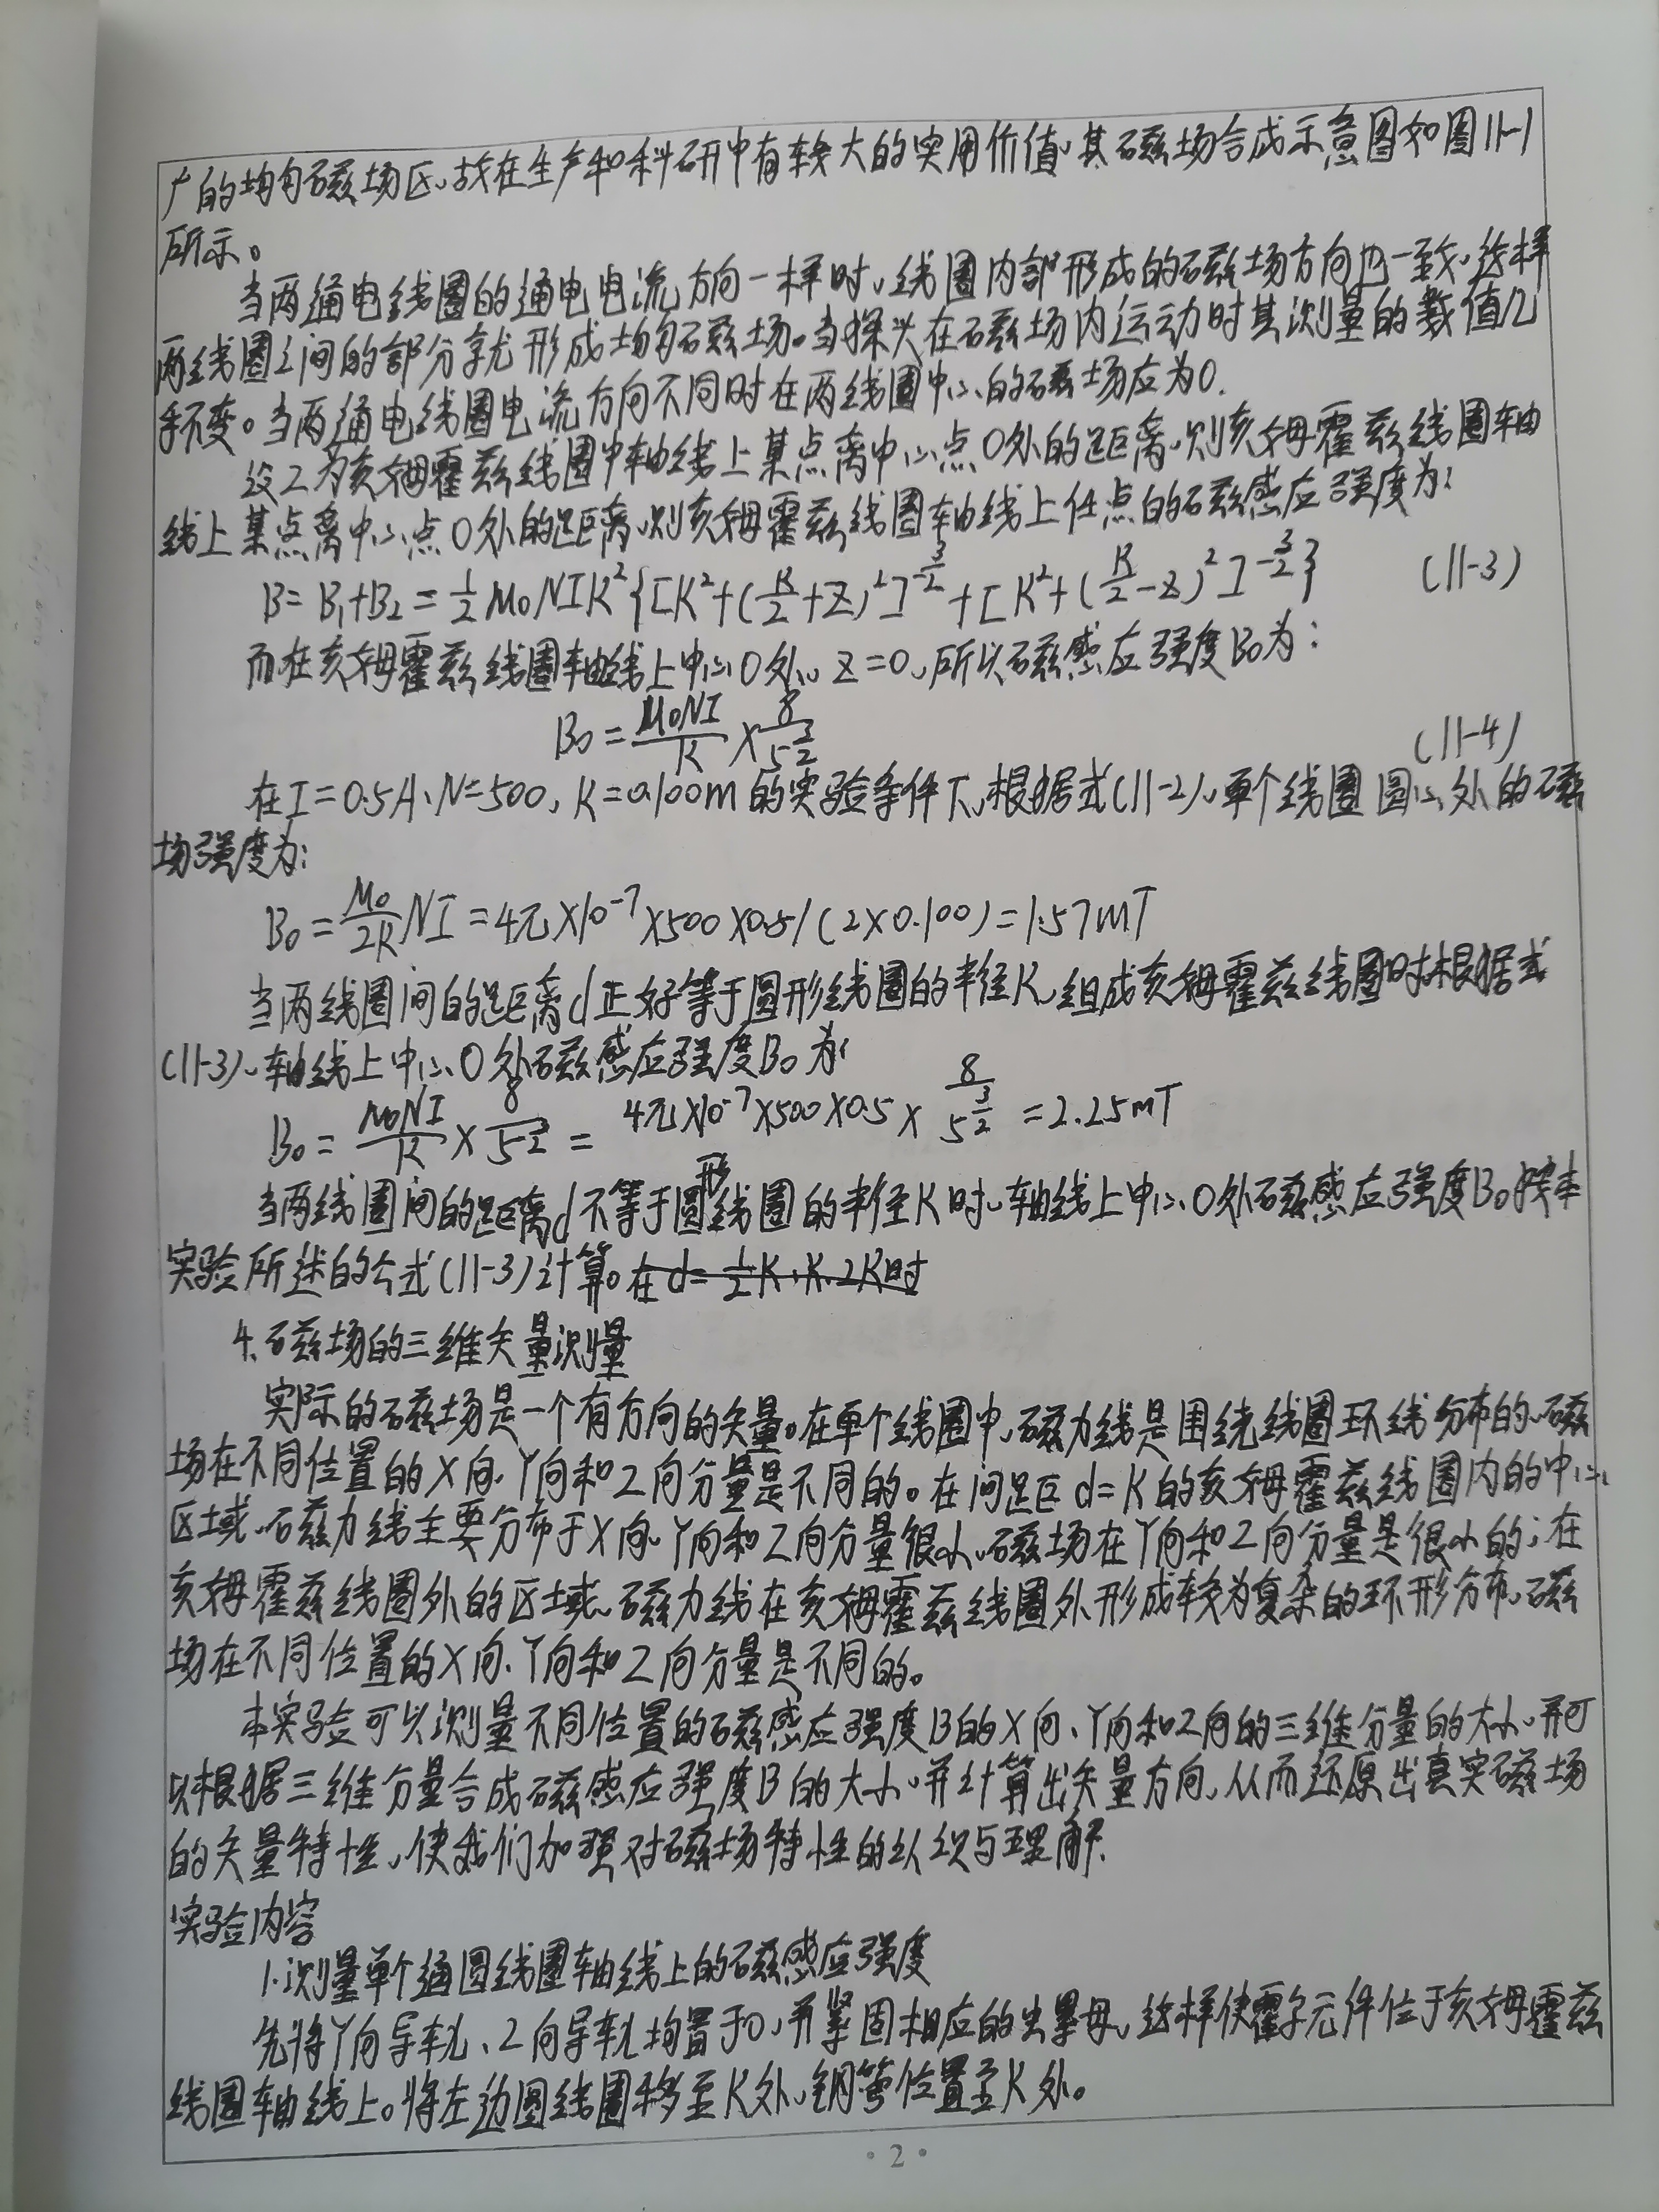 广的均匀磁场区,故在生产和科研中有较大的实用价值,其磁场合成示意图如图11-1
所示。
当两通电线圈的通电电流方向一样时,线圈内部形成的磁场方向也一致,这样
两线圈之间的部分就形成均匀磁场。当探头在磁场内运动时其测量的数值几
乎不变。当两通电线圈电流方向不同时在两线圈中心的磁场应为0.
设Z为亥姆霍兹线圈中轴线上某点离中心点O处的距离,则亥姆霍兹线圈轴
线上某点离中心点O处的距离,则亥姆霍兹线圈轴线上任点的磁感应强度为:
B=B₁+B₂=½μ₀NIR²{[R²+(R/2+Z)²]^(-3/2)+[R²+(R/2-Z)²]^(-3/2)} (11-3)
而在亥姆霍兹线圈轴线上中心O处,Z=0,所以磁感应强度B₀为:
B₀=μ₀NI/R×8/5^(3/2) (11-4)
在I=0.5A、N=500,R=0.100m的实验条件下,根据式(11-2),单个线圈圆心处的磁
场强度为:
B₀=μ₀/2R NI=4π×10⁻⁷×500×0.5/(2×0.100)=1.57mT
当两线圈间的距离d正好等于圆形线圈的半径R,组成亥姆霍兹线圈时,根据式
(11-3),轴线上中心O处磁感应强度B₀为:
B₀=μ₀NI/R×8/5^(3/2)=4π×10⁻⁷×500×0.5×8/5^(3/2)=2.25mT
当两线圈间的距离d不等于圆形线圈的半径R时,轴线上中心O处磁感应强度B₀按本
实验所述的公式(11-3)计算。在d=½R、R、2R时
4.磁场的三维矢量测量
实际的磁场是一个有方向的矢量。在单个线圈中,磁力线是围绕线圈环线分布的,磁
场在不同位置的X向、Y向和Z向分量是不同的。在间距d=R的亥姆霍兹线圈内的中心
区域,磁力线主要分布于X向,Y向和Z向分量很小,磁场在Y向和Z向分量是很小的;在
亥姆霍兹线圈外的区域,磁力线在亥姆霍兹线圈外形成较为复杂的环形分布,磁
场在不同位置的X向、Y向和Z向分量是不同的。
本实验可以测量不同位置的磁感应强度B的X向、Y向和Z向的三维分量的大小,并可
以根据三维分量合成磁感应强度B的大小,并计算出矢量方向,从而还原出真实磁场
的矢量特性,使我们加强对磁场特性的认识与理解.
实验内容
1.测量单个通圆线圈轴线上的磁感应强度
先将Y向导轨、Z向导轨均置于0,并紧固相应的螺母,这样使霍尔元件位于亥姆霍兹
线圈轴线上。将左边圆线圈移至R处,铜管位置至R处。
·2·